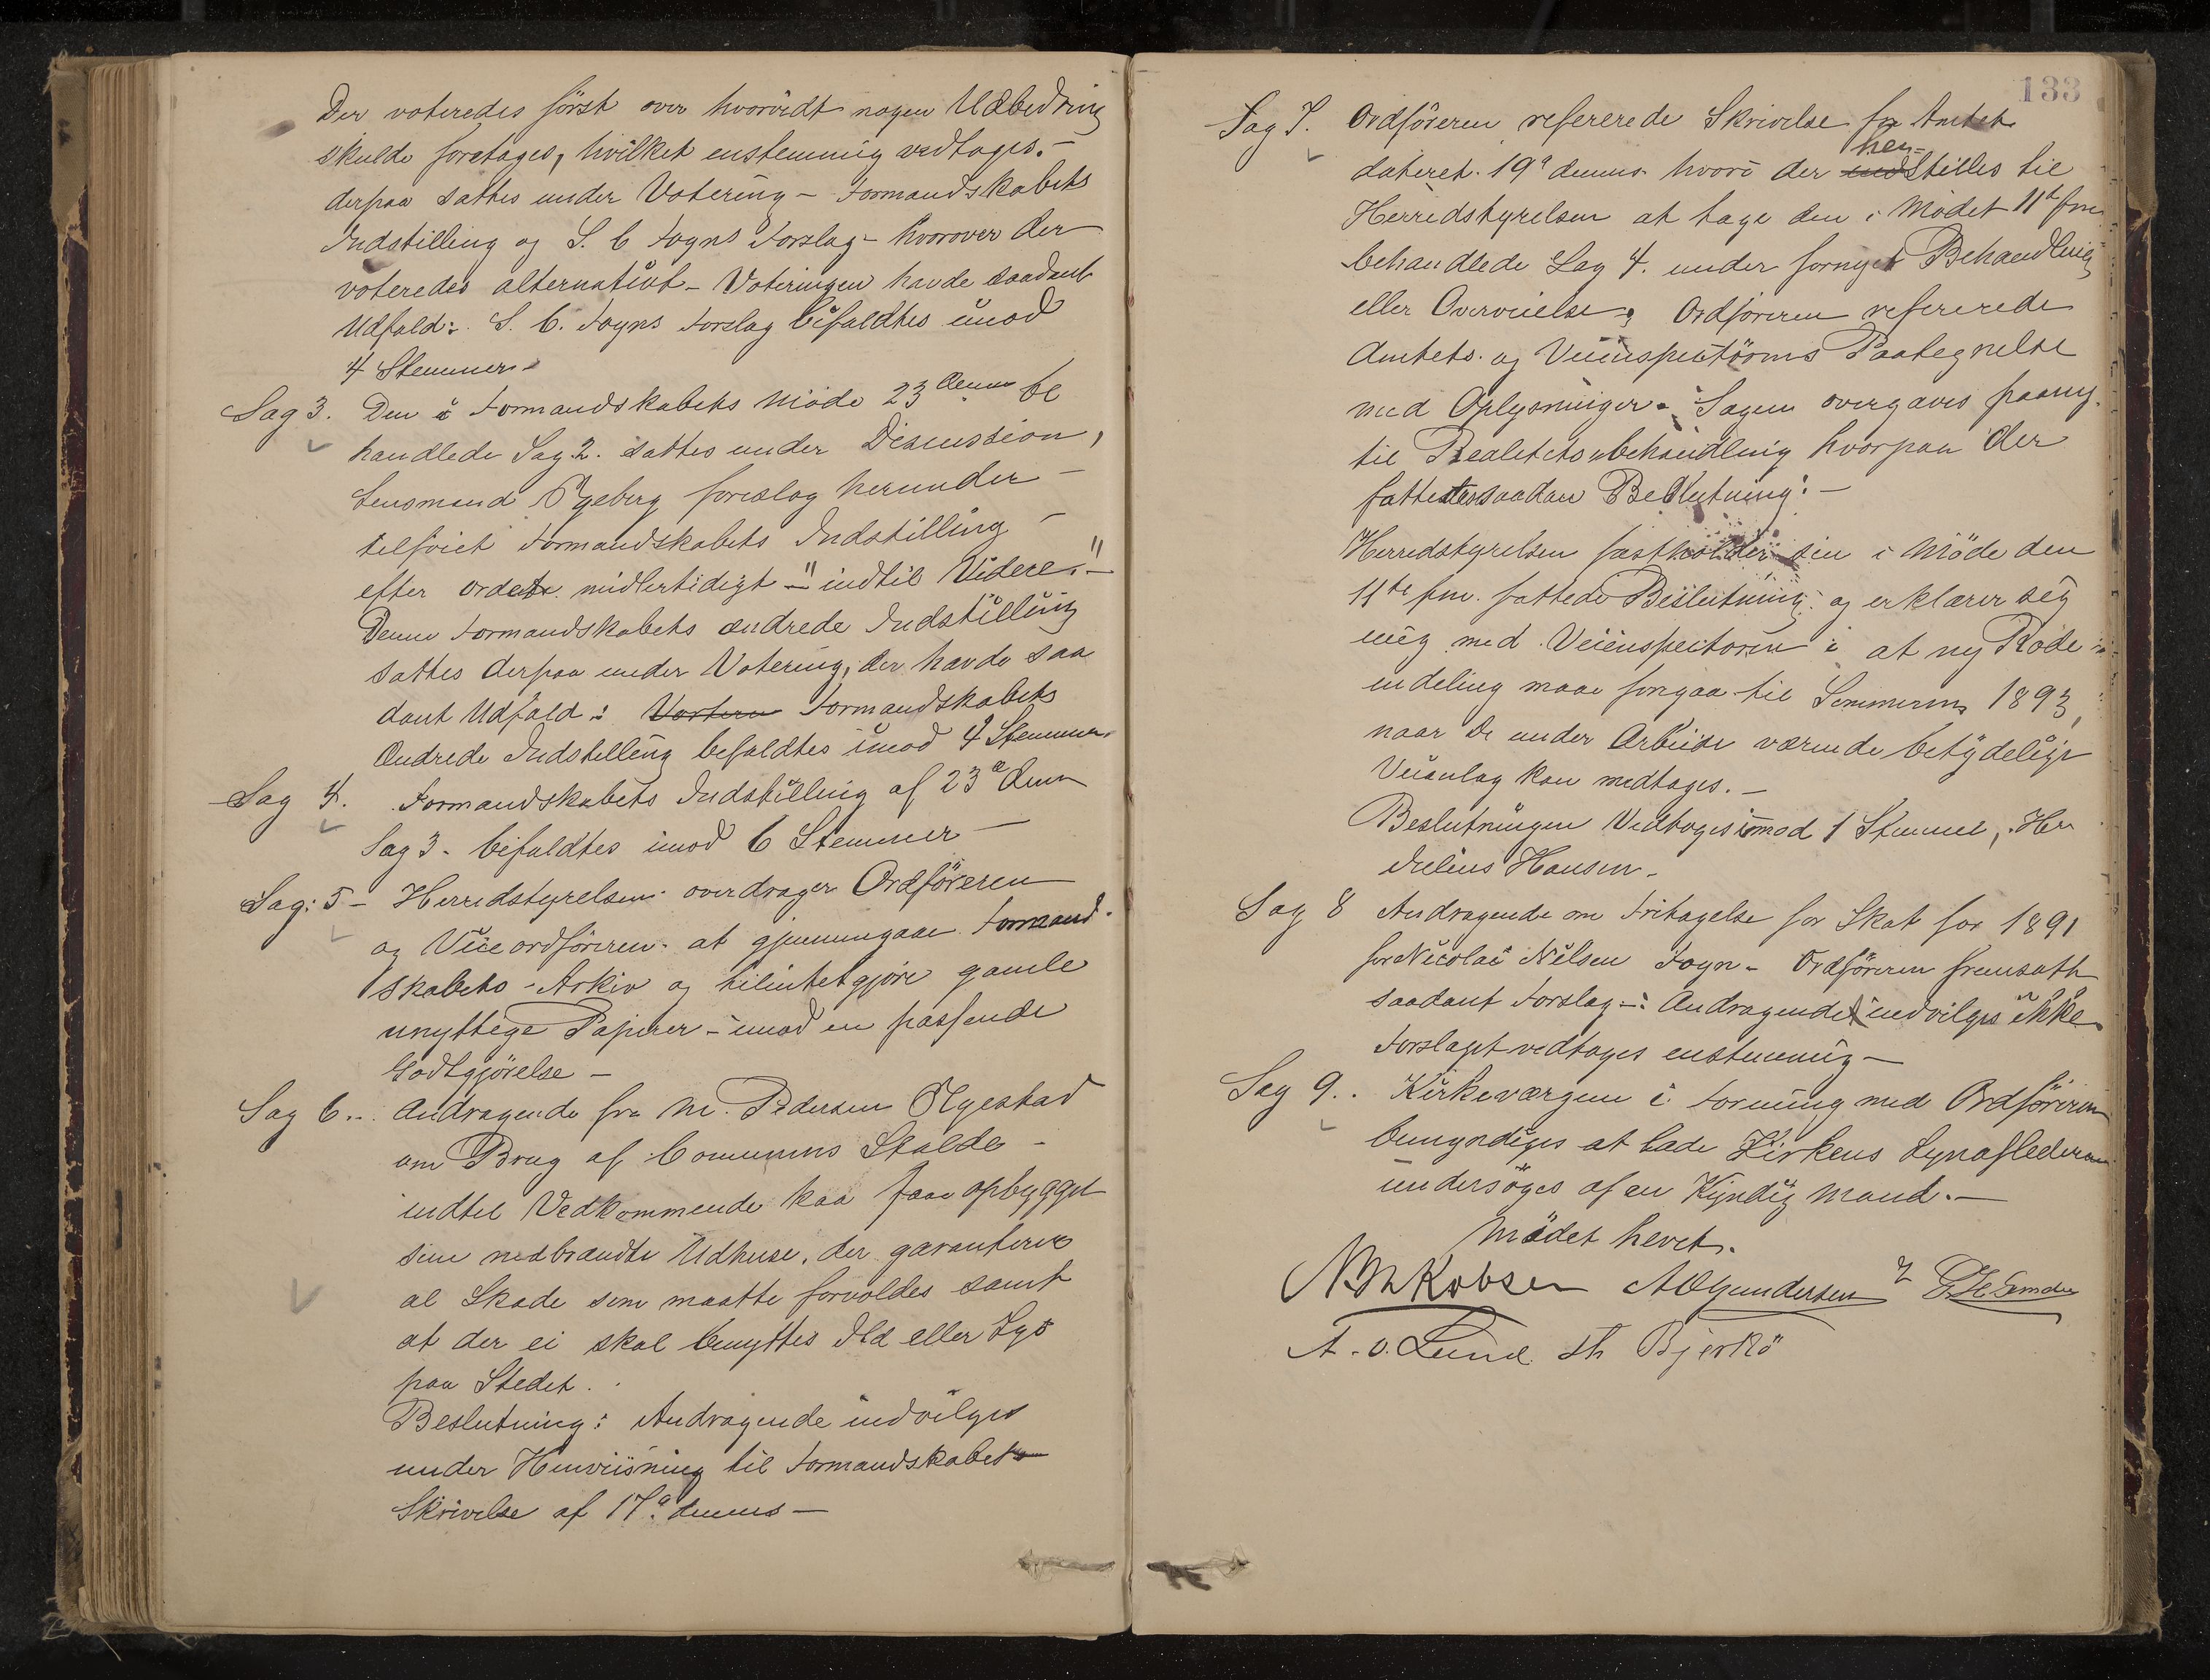 Der voteredes först over hvorvidt nogen Udbedring
skulde foretages, hvilket enstemmig vedtoges. -
derpaa sattes under Votering - Formandskabets
Indstilling og S. C. Fogns Forslag - hvorover der
voteredes alternativt - Voteringen havde saadant
Udfald: S. C. Fogns Forslag bifaldtes imod
4 Stemmer -
Sag 3. Den i Formandskabets Möde 23 dennes be
handlede Sag 2. sattes under Discussion,
Lensmand Ygeberg foreslog herunder -
tilföiet Formandskabets Indstilling -
efter ordet midlertidigt - "indtil Videre." -
Denne Formandskabets ændrede Indstilling
sattes derpaa under Votering, der havde saa
dant Udfald: Formandskabets
Ændrede Indstilling bifaldtes imod 4 Stemmer
Sag 4. Formandskabets Indstilling af 23de dennes
Sag 3. bifaldtes imod 6 Stemmer -
Sag: 5 - Herredstyrelsen overdrager Ordföreren
og Viceordföreren at gjennemgaae Formand-
skabets - Arkiv og tilintetgjöre gamle
unyttige Papirer - imod en passende
Godtgjörelse -
Sag 6. Andragende fra M. Pedersen Ølgestad
om Brug af Communens Stalde -
indtil Vedkommende kan faa opbygget
sine nedbrændte Udhuse, der garanteres
al Skade som maatte forvoldes samt
at der ei skal benyttes Ild eller Lys
paa Stedet.
Beslutning: Andragende indvilges
under Henvisning til Formandskabets
Skrivelse af 17de dennes -
133
Sag 7. Ordföreren refererede Skrivelse fra Amtet
hen-
dateret 19de dennes hvori der indstilles til
Herredstyrelsen at tage den i Mödet 11te fm.
behandlede Sag 4. under fornyet Behandling
eller Overveielse; Ordföreren refererede
Amtets og Veiinspectörens Paategnelse
med Oplysninger. Sagen overgaves paany
til Realitetsbehandling hvorpaa der
fattedes saadan Beslutning: -
Herredstyrelsen fastholder sin i Möde den
11te fm. fattede Beslutning og erklærer sig
enig med Veiinspectoren i at ny Rode
inddeling maa foregaa til Sommeren 1893,
naar de under Arbeide værende betydelige
Veianlæg kan medtages. -
Beslutningen Vedtoges imod 1 Stemme, Hr
Julius Hansen.
Sag 8 Andragende om Fritagelse for Skat for 1891
for Nicolai Nilsen Fogn - Ordföreren fremsatte
saadant Forslag -: Andragendet indvilges ikke
Forslaget vedtoges enstemmig -
Sag 9. Kirkeværgen i Forening med Ordföreren
bemyndiges at lade Kirkens Lynafledere
undersöges af en Kyndig Mand. -
Mödet hevet.
A. Gundersen
A. O. Lund. Th Bjerkö